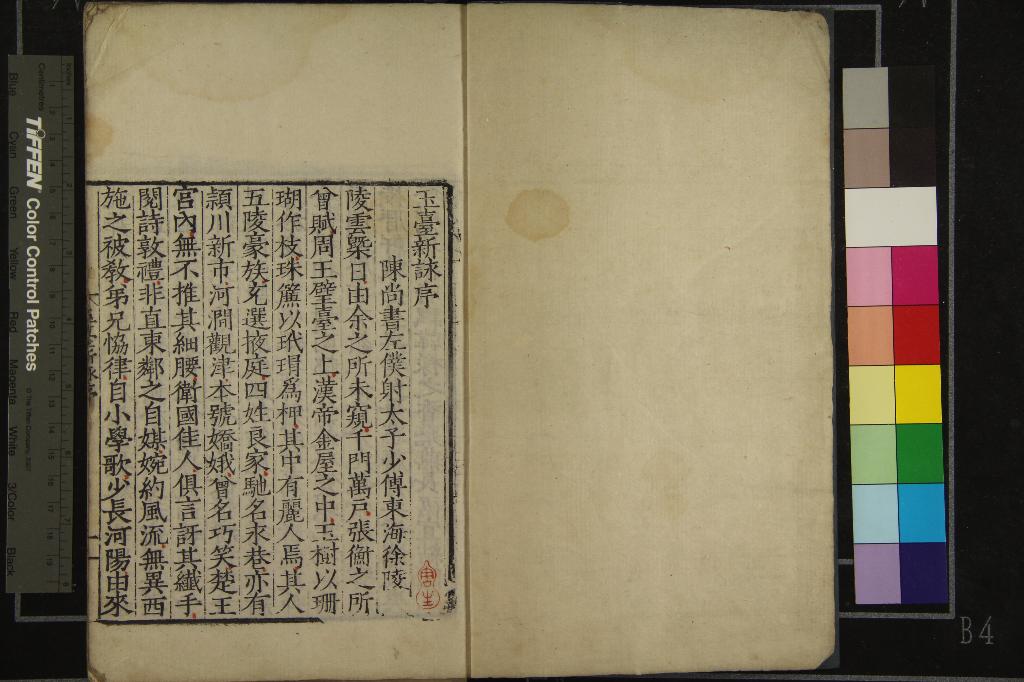 玉臺新詠序
陳尚書左僕射太子少傅東海徐陵
陵雲槩日由余之所未窺千門萬戶張衡之所
曾賦周王璧臺之上漢帝金屋之中玉樹以珊
瑚作枝珠簾以玳瑁爲柙其中有麗人焉其人
五陵豪族充選掖庭四姓良家馳名永巷亦有
潁川新市河澗觀津本號嬌娥曾名巧笑楚王
宮內無不推其細腰衛國佳人俱言訝其纖手
閱詩敦禮非直東鄰之自媒婉約風流無異西
施之被敎弟兄恊律自小學歌少長河陽由來
TIFFEN Color Control Patches
Centimetres
Inches
Blue
Cyan
Green
Yellow
Red
Magenta
White
3/Color
Black
B4